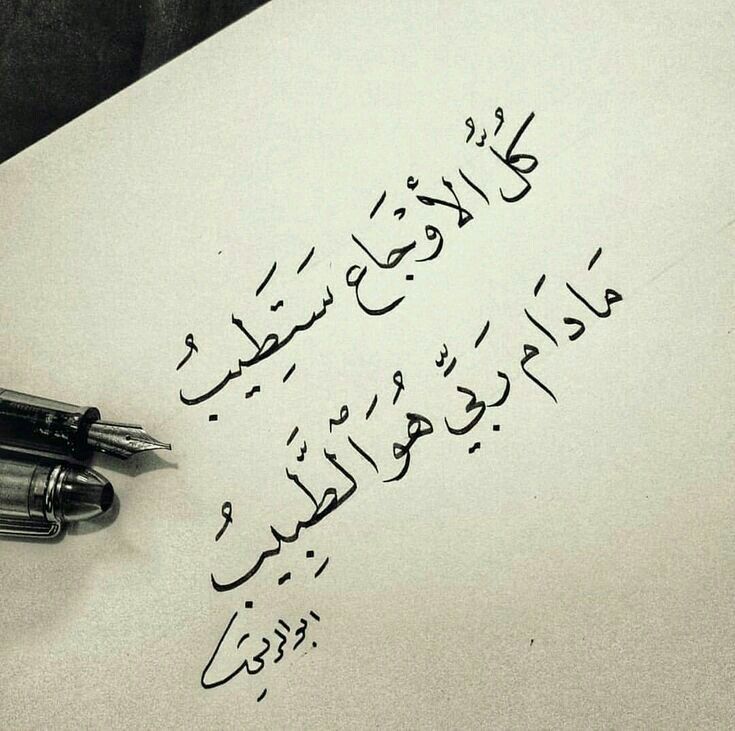 كُلُّ الأوْجَاع سَتَطِيبُ
مَادَام رَبِّي هُوَ ٱلْطَّبِيبُ